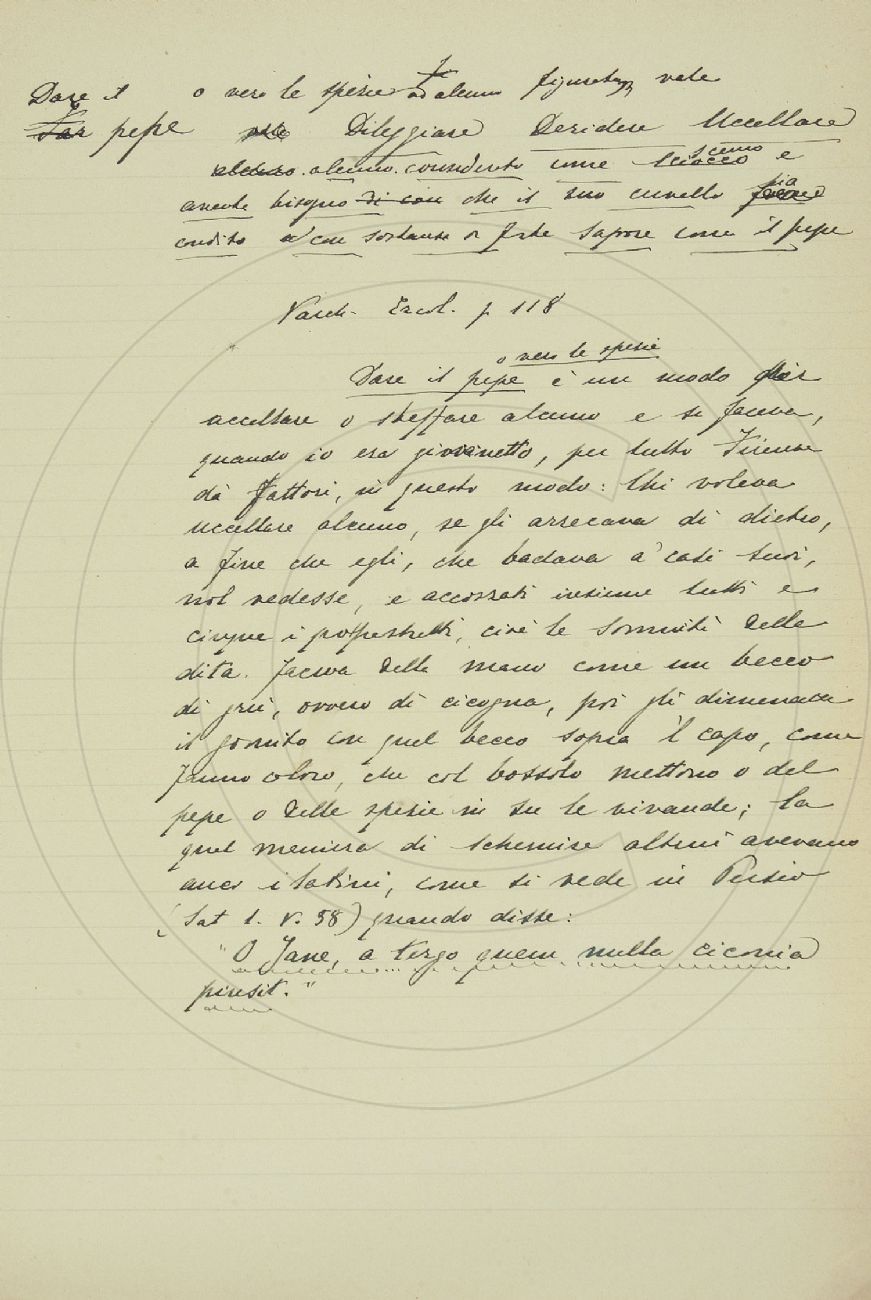 Dare il o vero le spezie ad alcuno figuratam vale
Far pepe vale Dileggiare Deridere Uccellare
alcuno considerato come sciocco scemo e
avente bisogno di con che il suo cervello sia
condito con sostanze di forte sapore come il pepe
Varch. Ercol. p 118
o vero le spezie
Dare il pepe è un modo per
uccellare o sbeffare alcuno e si faceva,
quando io era giovinetto, per tutto Firenze
da' fattori, in questo modo: Chi voleva
uccellare alcuno, se gli arrecava di dietro,
a fine che egli, che badava a' casi suoi,
nol vedesse, e accozzati insieme tutti e
cinque i polpastrelli, cioè le sommità delle
dita. faceva della mano come un becco
di gru, ovvero di cicogna, poi gli dimenava
il gomito con quel becco sopra 'l capo, come
fanno coloro, che col bossolo mettono o del
pepe o delle spezie in su le vivande; la
qual maniera di schernire altrui avevano
anco i latini, come si vede in Persio
(Sat 1. v. 58) quando disse:
"O Jane, a tergo quem nulla ciconia
pinsit."